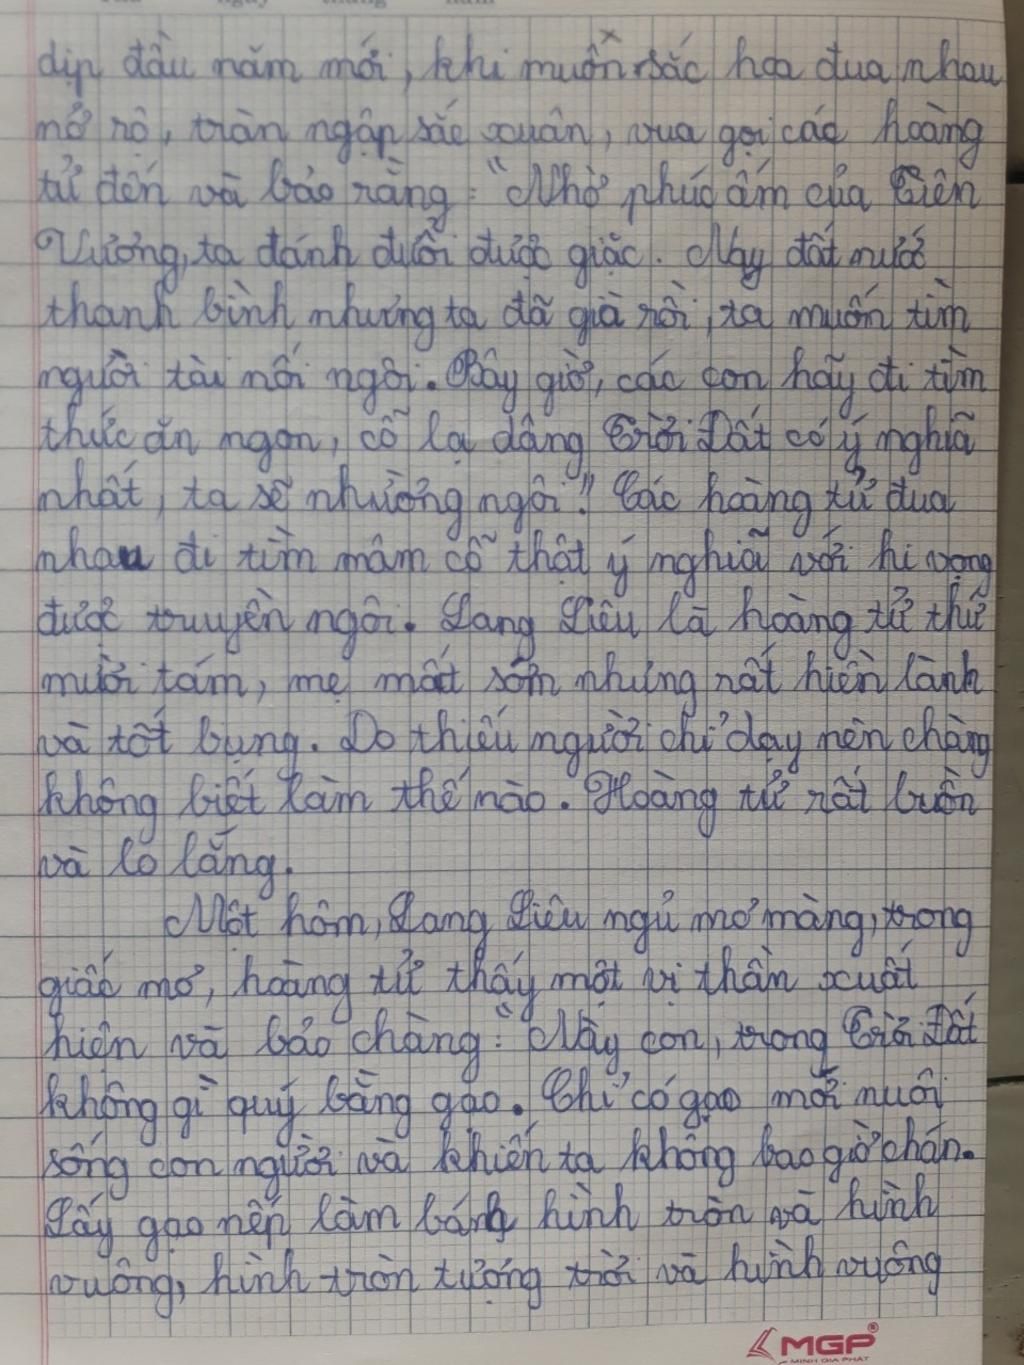 dịp đầu năm mới, khi muôn sắc hoa đua nhau
nở rộ, tràn ngập sắc xuân, vua gọi các hoàng
tử đến và bảo rằng: "Nhờ phúc ấm của Tiên
Vương, ta đánh đuổi được giặc. Nay đất nước
thanh bình nhưng ta đã già rồi, ta muốn tìm
người tài nối ngôi. Bây giờ, các con hãy đi tìm
thức ăn ngon, cỗ lạ dâng Trời Đất có ý nghĩa
nhất, ta sẽ nhường ngôi." Các hoàng tử đua
nhau đi tìm mâm cỗ thật ý nghĩa với hi vọng
được truyền ngôi. Lang Liêu là hoàng tử thứ
mười tám, mẹ mất sớm nhưng rất hiền lành
và tốt bụng. Do thiếu người chỉ dạy nên chàng
không biết làm thế nào. Hoàng tử rất buồn
và lo lắng.
Một hôm, Lang Liêu ngủ mơ màng, trong
giấc mơ, hoàng tử thấy một vị thần xuất
hiện và bảo chàng: "Này con, trong Trời Đất
không gì quý bằng gạo. Chỉ có gạo mới nuôi
sống con người và khiến ta không bao giờ chán.
Lấy gạo nếp làm bánh hình tròn và hình
vuông, hình tròn tượng trời và hình vuông
MGP®
MINH GIA PHAT